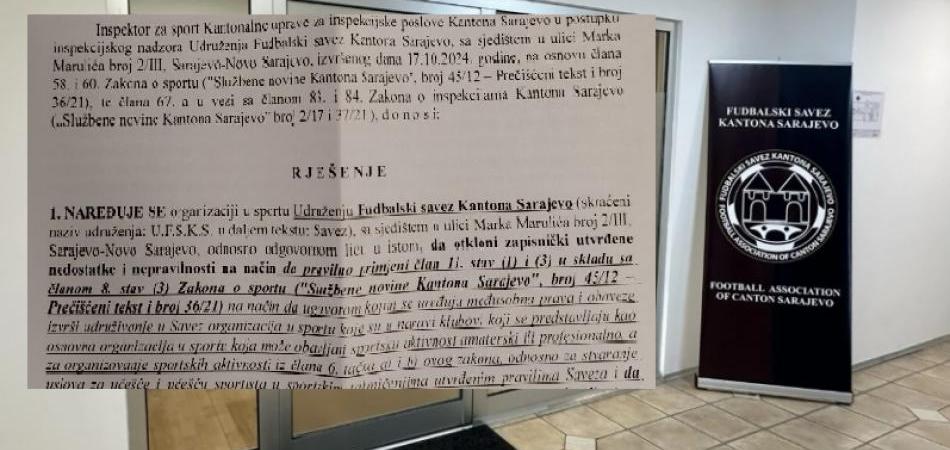 Inspektor za sport Kantonalne uprave za inspekcijske poslove Kantona Sarajevo u postupku
inspekcijskog nadzora Udruženja Fudbalski savez Kantora Sarajevo, sa sjedištem u ulici Marka
Marulića broj 2/III, Sarajevo-Novo Sarajevo, izvršenog dana 17.10.2024. godine, na osnovu člana
58. i 60. Zakona o sportu ("Službene novine Kantona Sarajevo", broj 45/12 – Prečišćeni tekst i broj
36/21), te člana 67. a u vezi sa članom 83. i 84. Zakona o inspekcijama Kantona Sarajevo
(„Službene novine Kantona Sarajevo" broj 2/17 i 37/21), d o n o s i:
RJEŠENJE
1. NAREĐUJE SE organizaciji u sportu Udruženju Fudbalski savez Kantona Sarajevo (skraćeni
naziv udruženja: U.F.S.K.S. u daljem tekstu: Savez), sa sjedištem u ulici Marka Marulića broj 2/III,
Sarajevo-Novo Sarajevo, odnosno odgovornom licu u istom, da otkloni zapisnički utvrđene
nedostatke i nepravilnosti na način da pravilno primjeni član 11. stav (1) i (3) u skladu sa
članom 8. stav (3) Zakona o sportu ("Službene novine Kantona Sarajevo", broj 45/12 –
Prečišćeni tekst i broj 36/21) na način da ugovorom kojim se uređuju međusobna prava i obaveze
izvrši udruživanje u Savez organizacija u sportu koje su u naravi klubovi, koji se predstavljaju kao
osnovna organizacija u sportu koja može obavljati sportsku aktivnost amaterski ili profesionalno, a
za organizovanje sportskih aktivnosti iz člana 6. tačka a) i b) ovog zakona, odnosno za stvaranje
uslova za učešće i učešću sportista u sportskim takmičenjima utvrđenim pravilima Saveza i da
FUDBALSKI SAVEZ
KANTONA SARAJEVO
FUDBALSKI SAVEZ KANTONA SARAJEVO
FOOTBALL ASSOCIATION OF CANTON SARAJEVO
FOOTBALL ASSOCIATION
OF CANTON SARAJEVO